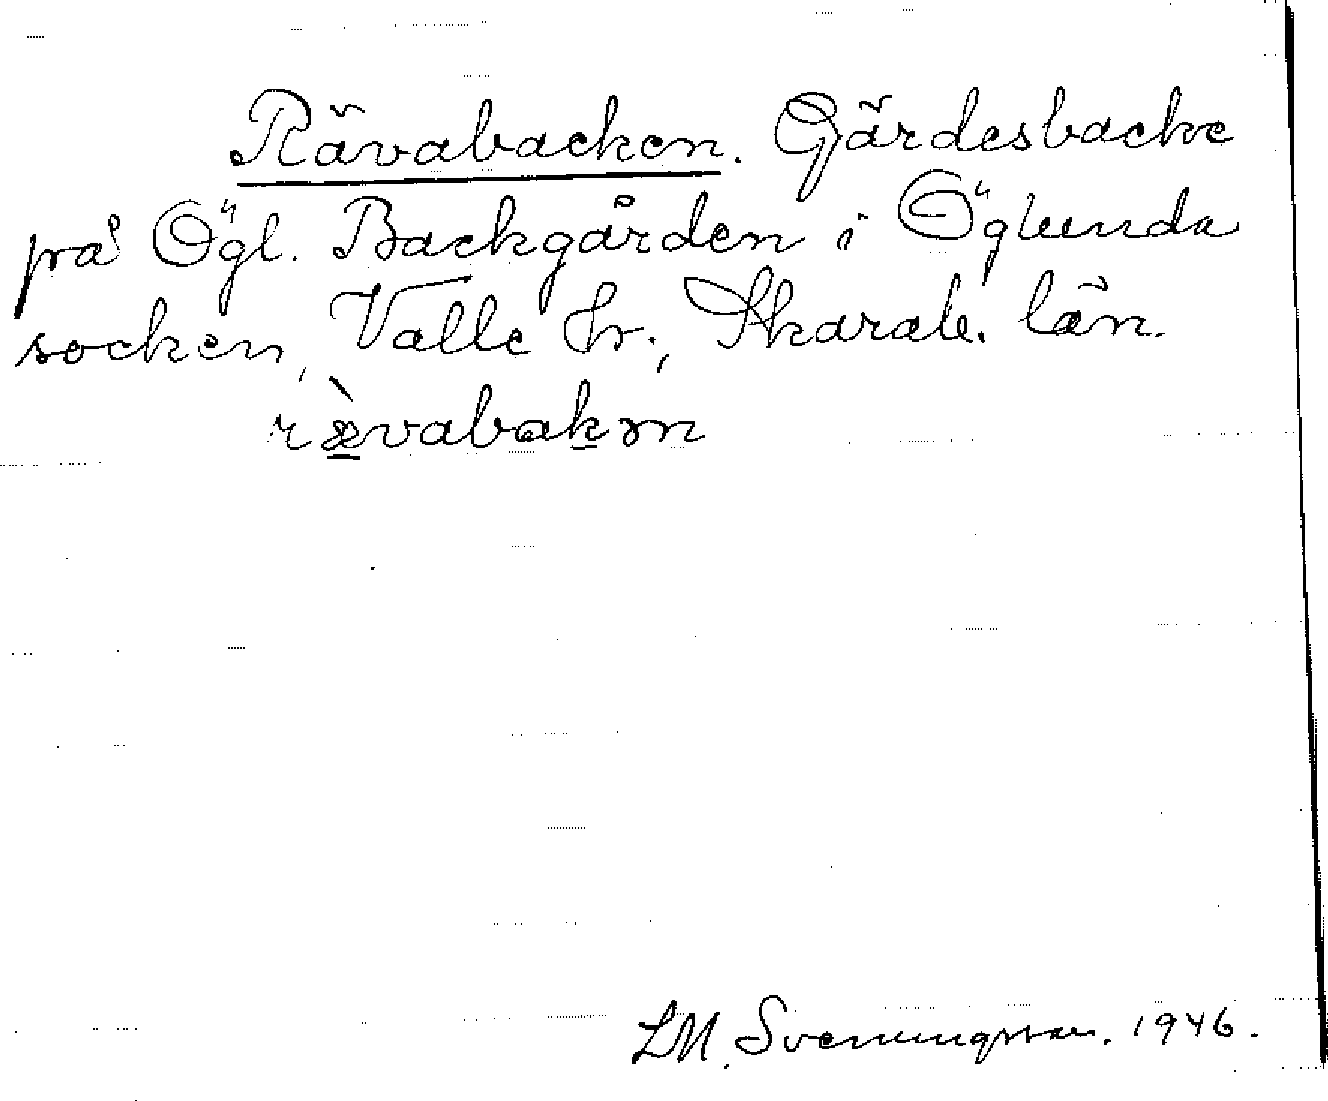 Rävabacken. Gärdesbacke
på Ögl. Backgården i Öglunda
socken, Valle hr., Skarab. län.
ræ̀vabakən
LM. Svenningsson. 1946.